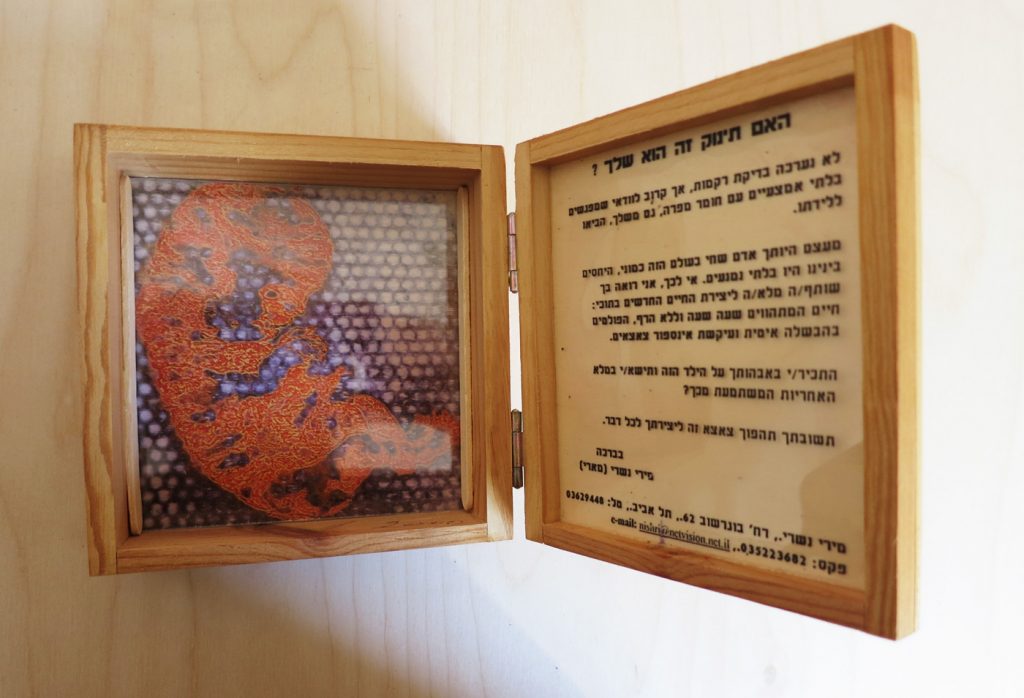 האם תינוק זה הוא שלך ?
לא נערכה בדיקת רקמות, אך קרוב לוודאי שמפגשים
בלתי אמצעיים עם חומר מפרה, גם משלך, הביאו
ללידתו.
מעצם היותך אדם שחי בעולם הזה כמוני, היחסים
בינינו היו בלתי נמנעים. אי לכך, אני רואה בך
שותף/ה מלא/ה ליצירת החיים החדשים בתוכי:
חיים המתהווים שעה שעה וללא הרף, הפולטים
בהבשלה איטית ועיקשת אינספור צאצאים.
התכיר/י באבהותך על הילד הזה ותישא/י במלא
האחריות המשתמעת מכך?
תשובתך תהפוך צאצא זה ליצירתך לכל דבר.
בברכה
מירי נשרי (מארי)
מירי נשרי., רח' בוגרשוב 62., תל אביב., טל: 03629448
פקס: 035223682., e-mail: nishri@netvision.net.il